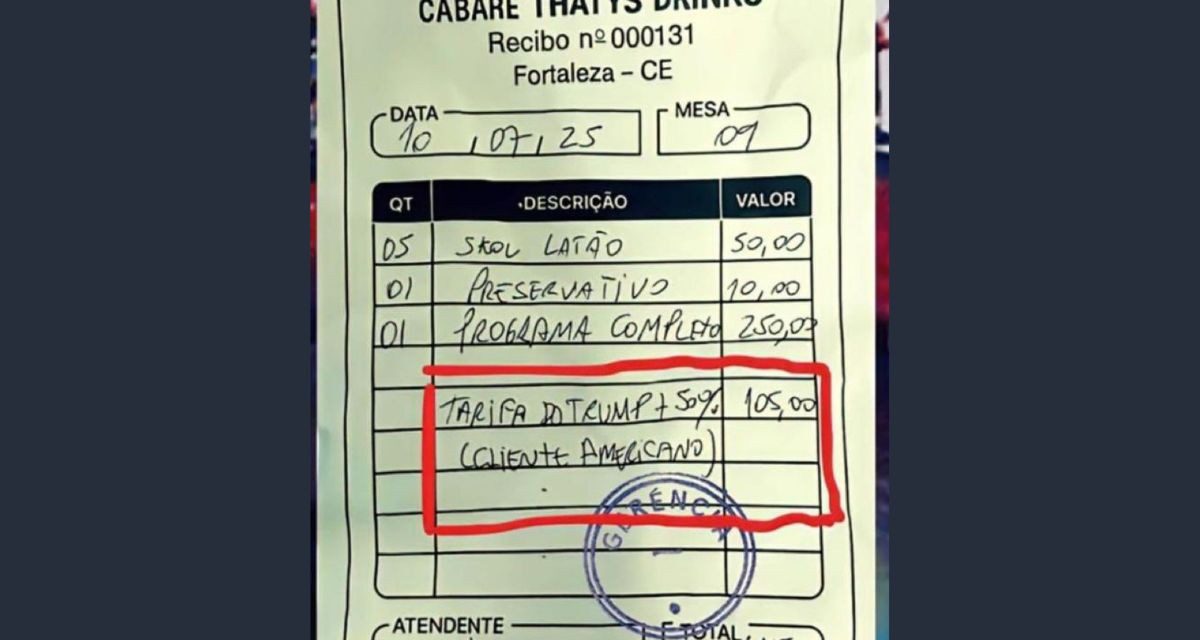 CABARÉ THATYS DRINKS
Recibo nº 000131
Fortaleza – CE
DATA MESA
10 / 07 / 25 09
QT DESCRIÇÃO VALOR
05 SKOL LATÃO 50,00
01 PRESERVATIVO 10,00
01 PROGRAMA COMPLETO 250,00
TARIFA DO TRUMP + 50% 105,00
(CLIENTE AMERICANO)
GERÊNCIA
ATENDENTE TOTAL